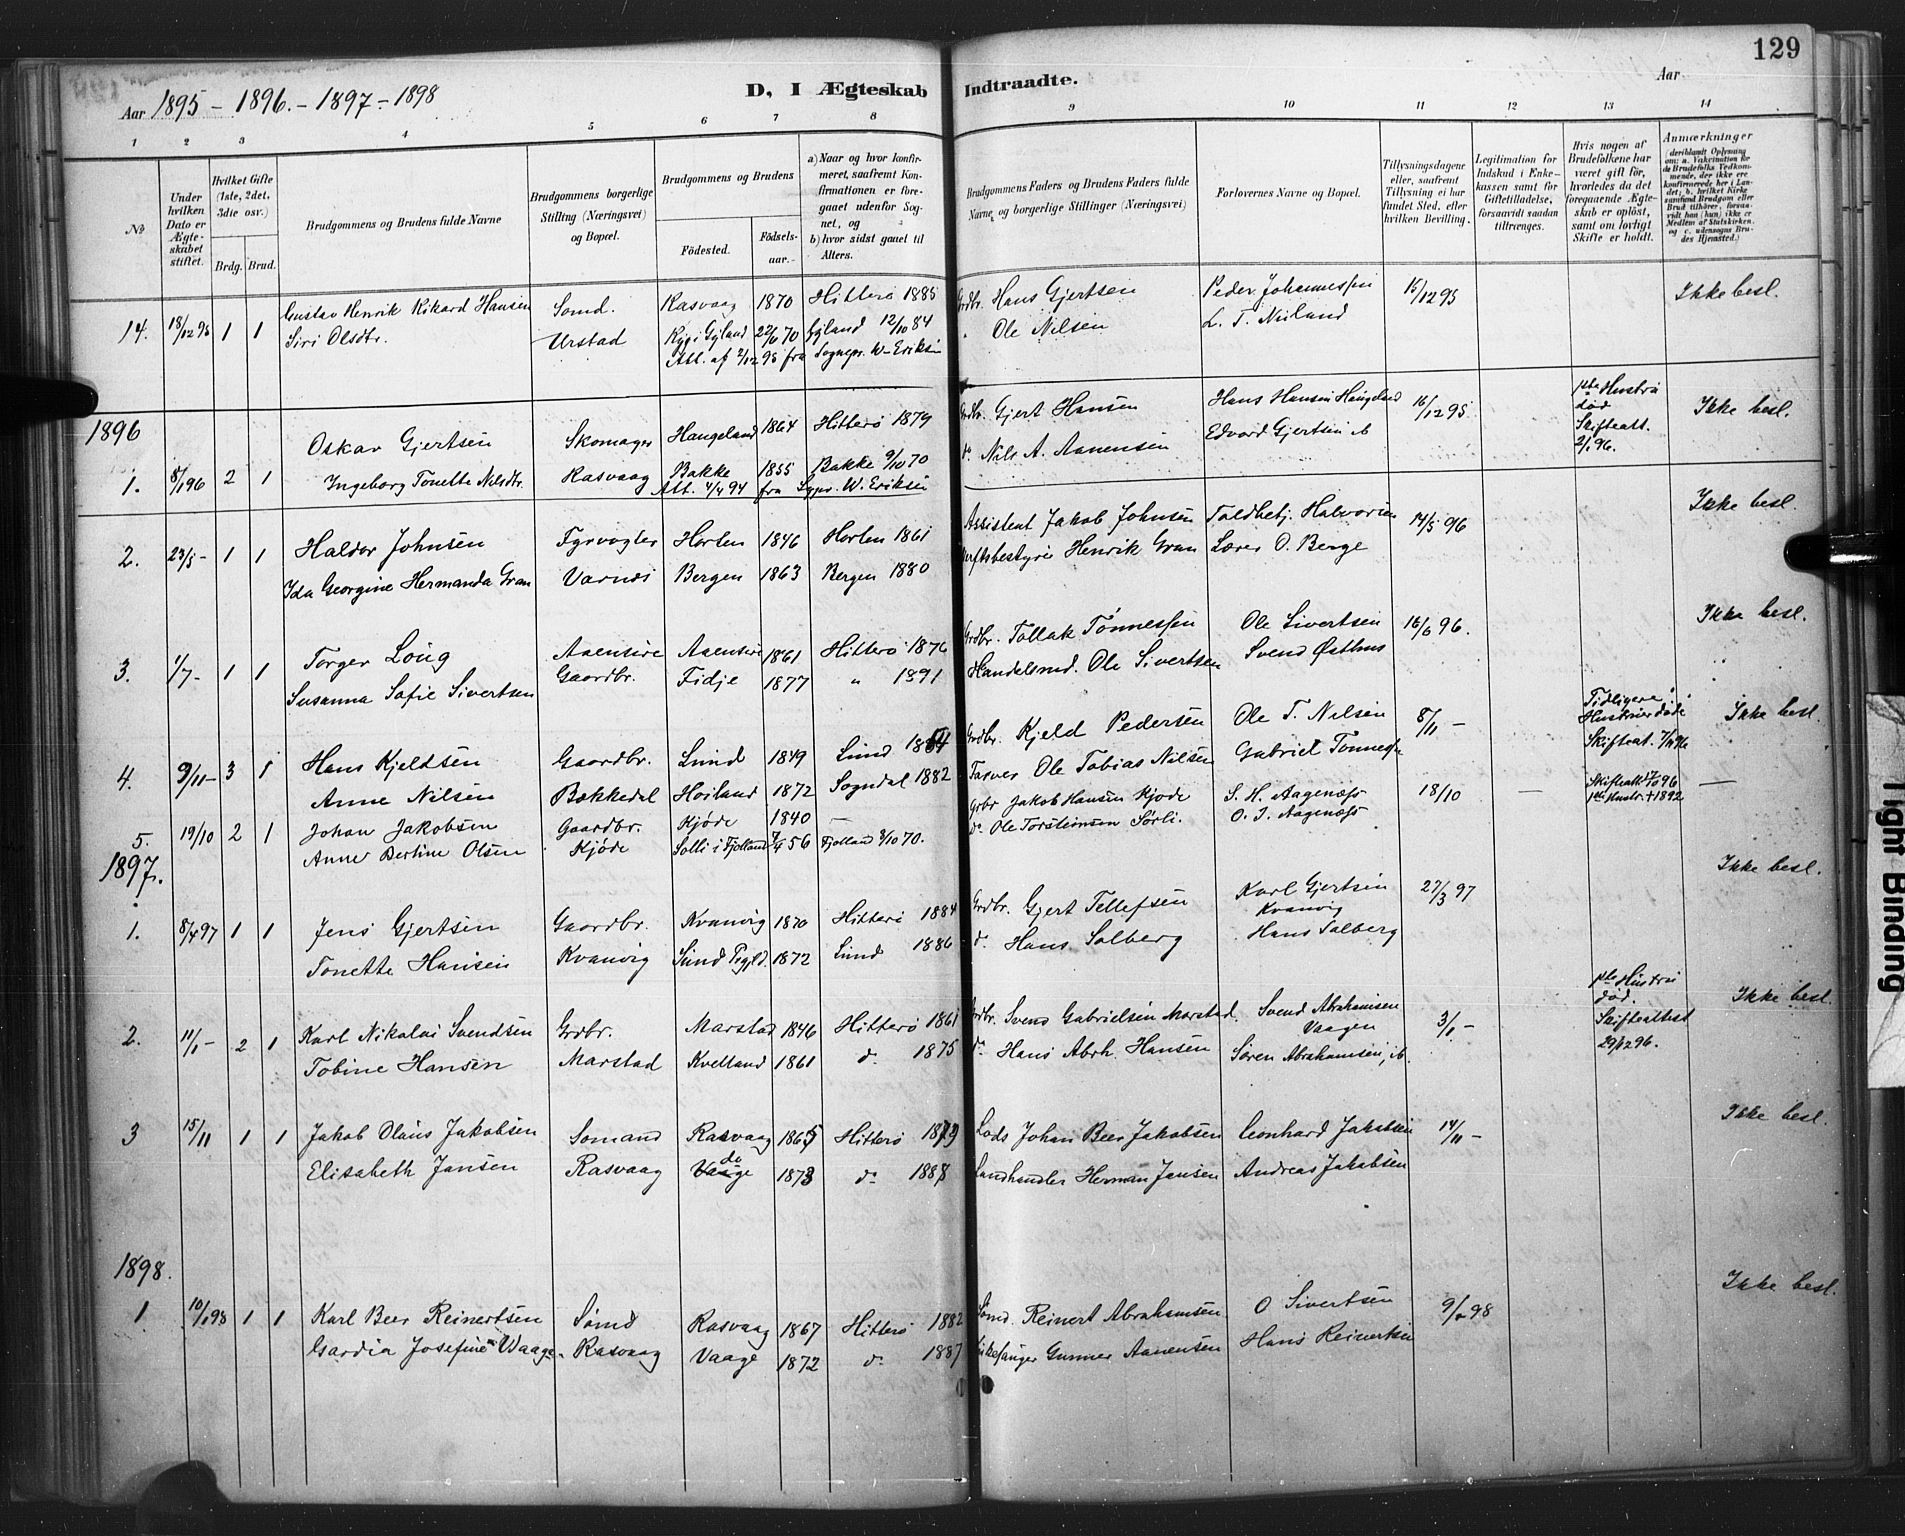 129
Aar 1895 - 1896. - 1897 - 1898
D, I Ægteskab Indtraadte.
Aar
1 2 3 4 5 6 7 8 9 10 11 12 13 14
No
Under hvilken Dato er Ægteskabet stiftet.
Hvilket Gifte (1ste, 2det, 3die osv.)
Brdg. Brud.
Brudgommens og Brudens fulde Navne
Brudgommens borgerlige Stilling (Næringsvei) og Bopæl.
Brudgommens og Brudens
Fødested.
Fødselsaar.
a) Naar og hvor konfirmeret, saafremt Konfirmationen er foregaaet udenfor Sognet, og
b) hvor sidst gaaet til Alters.
Brudgommens Faders og Brudens Faders fulde Navne og borgerlige Stillinger (Næringsvei)
Forlovernes Navne og Bopæl.
Tillysningsdagene eller, saafremt Tillysning ei har fundet Sted, efter hvilken Bevilling.
Legitimation for Indskud i Enkekassen samt for Giftetilladelse, forsaavidt saadan tiltrænges.
Hvis nogen af Brudefolkene har været gift før, hvorledes da det foregaaende Ægteskab er opløst, samt om lovligt Skifte er holdt.
Anmærkninger (deriblandt Oplysning om: a. Vakcination for de Brudefolks Vedkommende, der ikke ere konfirmerede her i Landet; b. hvilket Kirkesamfund Brudgom eller Brud tilhører, forsaavidt han (hun) ikke er Medlem af Statskirken, og c. udensogns Brudes Hjemsted.)
14. 18/12 95 1 1 Gustav Henrik Rikard Hansen Somd. Rasvaag 1870 Hitterø 1885 Grdbr. Hans Gjertsen Peder Johannessen 15/12 95 Ikke besl.
Siri Olsdtr. Urstad Gyland 22/6 70 Gyland 12/10 84 Ole Nilsen L. T. Nuland
Att. af 2/12 95 fra Sognepr. W. Eriksen
1896
1. 8/1 96 2 1 Oskar Gjertsen Skomager Haugeland 1864 Hitterø 1879 Grdbr. Gjert Hansen Hans Hansen Haugeland 16/12 95 1ste Hustru død Skifteatt. 2/1 96. Ikke besl.
Ingeborg Tonette Nilsdtr. Rasvaag Bakke 1855 Bakke 9/10 70 do Nils A. Aanensen Edvard Gjertsen ib
Att. 4/4 94 fra Sgpr. W. Eriksen
2. 23/5 - 1 1 Haldor Johnsen Fyrvogter Horten 1846 Horten 1861 Assistent Jakob Johnsen Toldbetj. Halvorsen 14/5 96 Ikke besl.
Ida Georgine Hermanda Gran Varnæs Bergen 1863 Bergen 1880 Værftsbestyrer Henrik Gran Lærer O. Berge
3. 1/7 - 1 1 Torger Loug Aaensire Aaensire 1861 Hitterø 1876 Grdbr. Tollak Tønnessen Ole Sivertsen 16/6 96. Ikke besl.
Susanna Sofie Sivertsen Gaardbr. Fidje 1877 " 1891 Handelsmd. Ole Sivertsen Svend Østhus
4. 9/11 - 3 1 Hans Kjeldsen Gaardbr. Lund 1849 Lund 1864 Grdbr. Kjeld Pedersen Ole T. Nilsen 8/11 - Tidligere Hustruer døde Skifteat. Ikke besl.
Anne Nilsen Bækkedal Hoiland 1872 Sogndal 1882 Farver Ole Tobias Nilsen Gabriel Tønnesen
5. 19/10 2 1 Johan Jakobsen Gaardbr. Kjøde 1840 — Grbr Jakob Hansen Kjøde S. H. Aagenæss 18/10 — Skifteatt 17/10 96 1ste Hustr. + 1892 —
Anne Bertine Olsen Kjøde Solli i Fjotland 7/4 56 Fjotland 2/10 70. do Ole Torsteinsen Sørli. O. J. Aagenæss
1897.
1. 8/4 97 1 1 Jens Gjertsen Gaardbr. Kvanvig 1870 Hitterø 1884 Grdbr. Gjert Tellefsen Karl Gjertsen Kvanvig 27/3 97 Ikke besl.
Tonette Hansen Kvanvig Lund 1872 Lund 1886 do Hans Solberg Hans Solberg
2. 11/1 - 2 1 Karl Nikolai Svendsen Grdbr. Marstad 1846 Hitterø 1861 Grdbr. Svend Gabrielsen Marstad Svend Abrahamsen Vaagen 3/1 - 1ste Hustru død. Skifteattest 29/12 96. Ikke besl.
Tobine Hansen Marstad Kvelland 1861 do 1875 do Hans Abrh. Hansen Søren Abrahamsen, ib.
3 15/11 1 1 Jakob Olaus Jakobsen Somand Rasvaag 1865 Hitterø 1879 Lods Johan Beer Jakobsen Leonhard Jakobsen 14/11 - Ikke besl.
Elisabeth Jansen Rasvaag Vaage do 1873 do 1888 Landhandler Herman Jansen Andreas Jakobsen
1898.
1 10/1 98 1 1 Karl Beer Reinertsen Sømd Rasvaag 1867 Hitterø 1882 Sømd. Reinert Abrahamsen O Sivertsen 9/1 98 Ikke besl.
Gardia Josefine Waage Rasvaag Vaage 1872 do 1887 Kirkesanger Gunner Aanensen Hans Reinertsen
Tight Binding